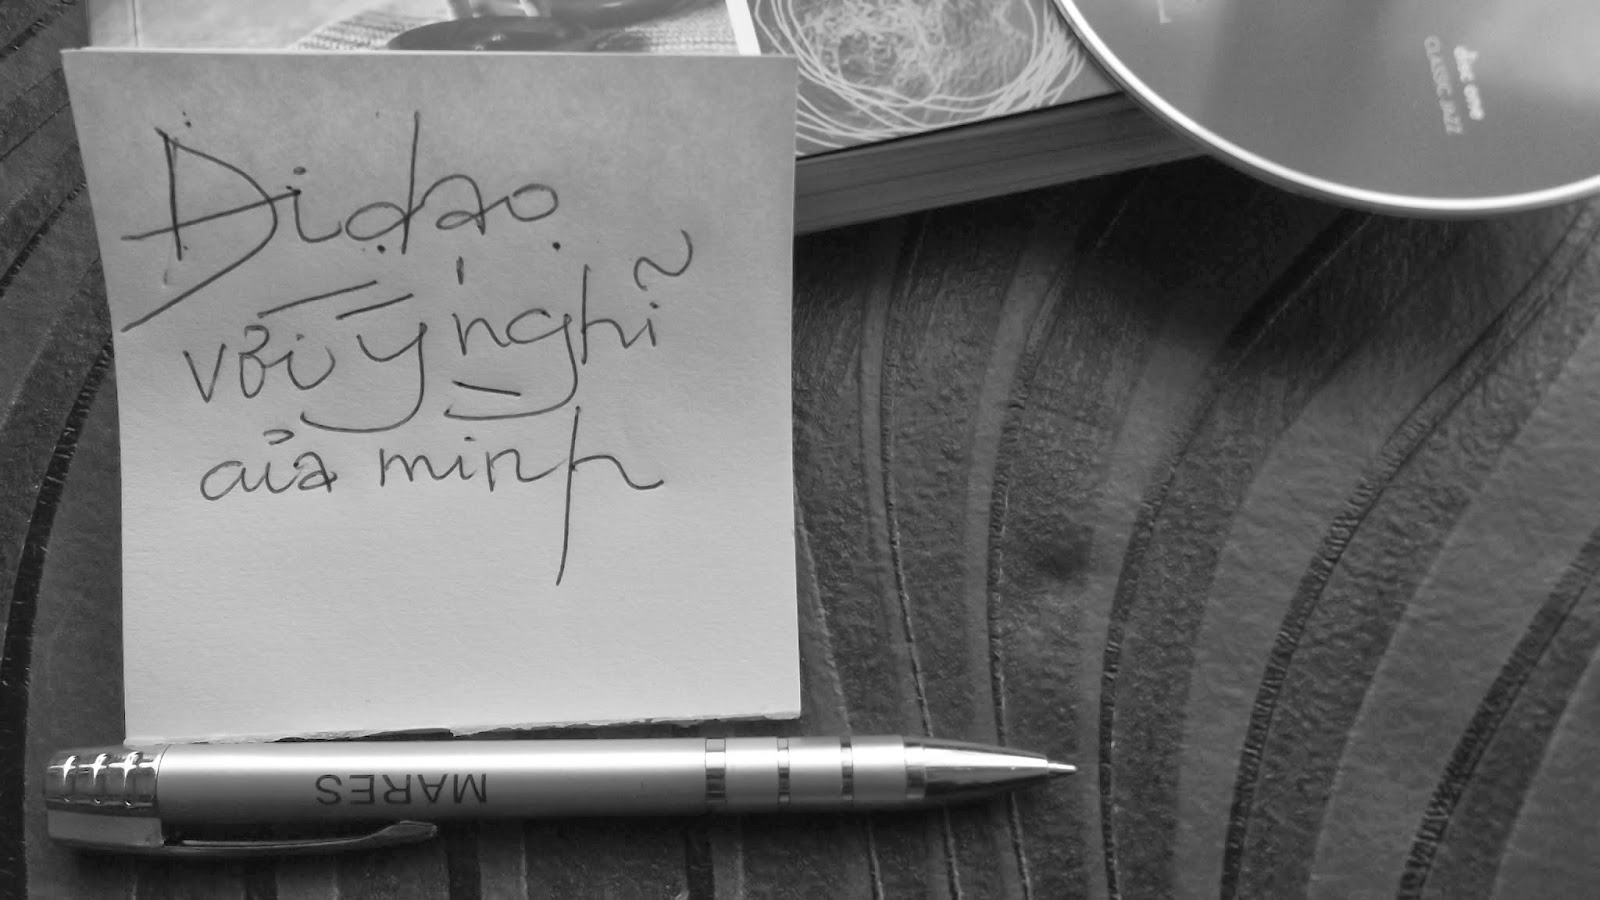 Đi dạo
với ý nghĩ
của mình
MARES
disc one
CLASSIC JAZZ